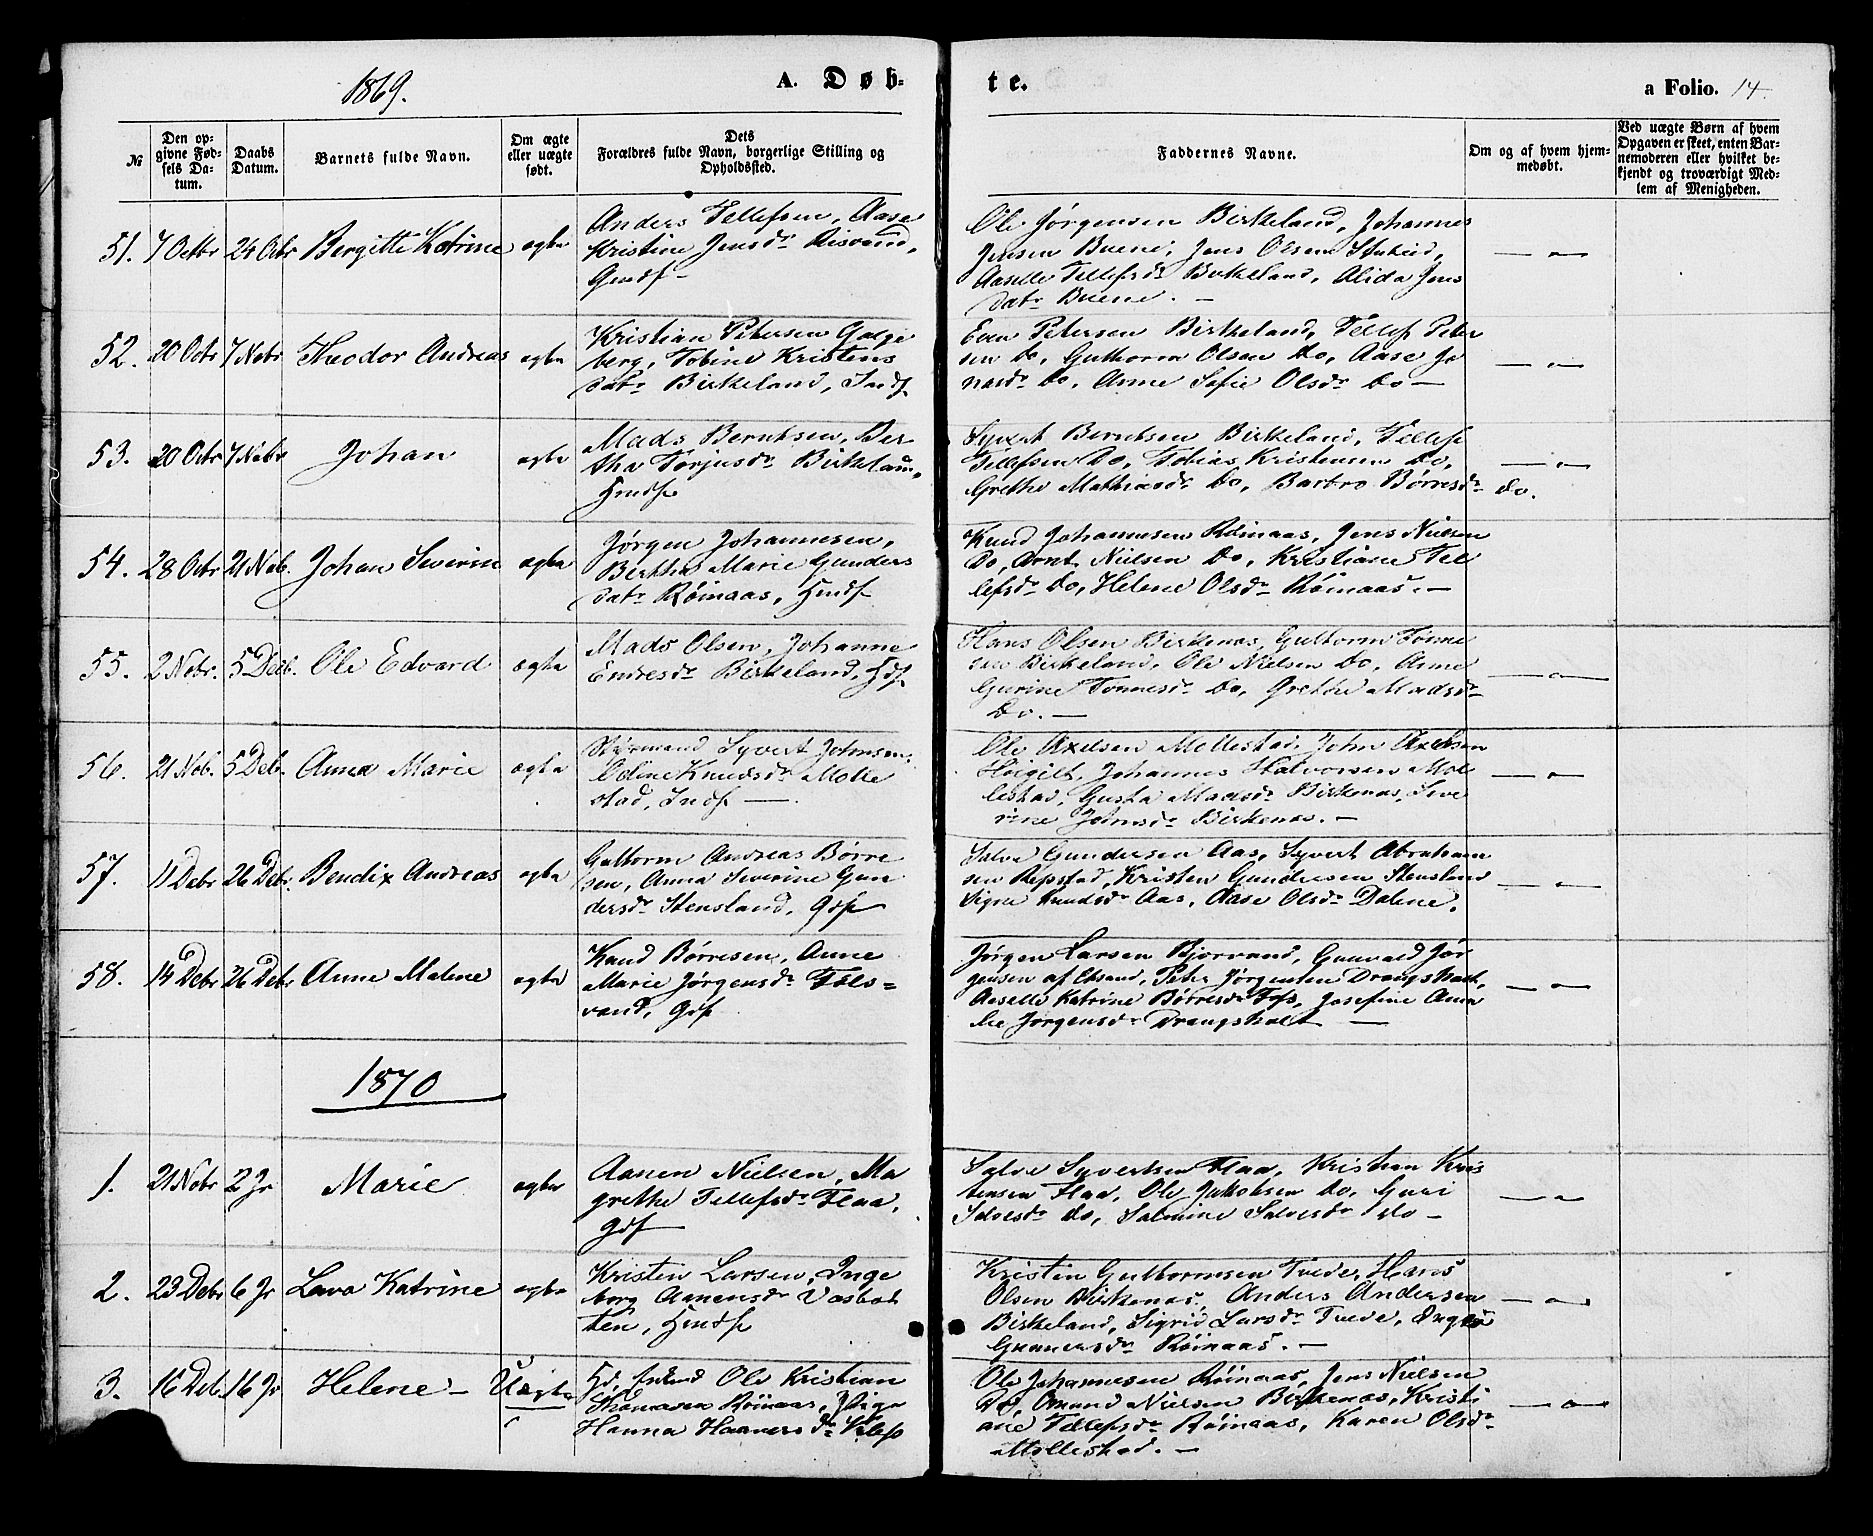 1869.
A. Døb-
te.
a Folio. 14.
№
Den op-
givne Fød-
sels Da-
tum.
Daabs
Datum.
Barnets fulde Navn.
Om ægte
eller uægte
født.
Dets
Forældres fulde Navn, borgerlige Stilling og
Opholdssted.
Faddernes Navne.
Om og af hvem hjem-
medøbt.
Ved uægte Børn af hvem
Opgaven er skeet, enten Bar-
nemoderen eller hvilket be-
kjendt og troværdigt Med-
lem af Menigheden.
51. 7 Octbr 24 Octbr Bergitte Katrine ægte
Anders Tellefsen, Aase
Kristine Jensdr Risvand,
Ole Jørgensen Birkeland, Johannes
Jensen Buene, Jens Olsen
Aaselle Tellefsdr Birkeland, Alida Jens
datr Buene. —
52. 20 Octr 7 Nobr Theodor Andreas ægte
Kristian Petersen Galge
berg, Tobine Kristens
datr Birkeland, Indf
Even Petersen Birkeland, Tellef Peter
sen do, Guthorm Olsen do, Aase Jo
nasdr do, Anne Sofie Olsdr do —
53. 20 Octr 7 Nobr Johan ægte
Mads Berntsen, Ber
tha Torjusdr Birkeland,
Hmdf
Syvert Berntsen Birkeland, Tellef
Tellefsen do, Tobias Kristensen do,
Grethe Mathiasdr do, Barbro Børresdr do.
54. 28 Octr 21 Nob. Johan Severin ægte
Jørgen Johannesen,
Berthe Marie Gunders
datr Røinaas, Hmdf
Knud Johannesen Røinaas, Jens Nielsen
do, Arnt Nielsen do, Kristiane Tel
lefsdr do, Helene Olsdr Røinaas. —
55. 2 Nobr. 5 Deb. Ole Edvard ægte
Mads Olsen, Johanne
Endresdr Birkeland, Hdf
Hans Olsen Birkenas, Guttorm Tønne
sen Birkeland, Ole Nielsen do, Anne
Gurine Tønnesdr do, Grethe Madsdr
do. —
56. 21 Nob. 5 Deb. Anna Marie ægte
Styrmand Syvert Johnsen,
Oline Knudsdr Molle
stad, Indf —
Ole Axelsen Mollestad, John Axelsen
Høigilt, Johannes Halvorsen Mol
lestad, Gusta Madsdr Birkenas, Seve
rine Johnsdr Birkenas. —
57. 11 Debr 26 Deb. Bendix Andreas ægte
Guttorm Andreas Børre
sen, Anna Severine Gun
dersdr Stensland, Gdf
Salve Gundersen Aas, Syvert Abraham
sen Repstad, Kristen Gundersen Stensland
Signe Knudsdr Aas, Aase Olsdr Dalene.
58. 14 Debr 26 Debr Anne Malene ægte
Knud Børresen, Anne
Marie Jørgensdr Fols=
vand, Gdf
Jørgen Larsen Bjorvand, Gunvald Jør
gensen af Chrsand, Peter Jørgensen Drangsholt,
Aaselle Katrine Børresdr Foss, Josefine Ama
lie Jørgensdr Drangsholt —
1870
1. 21 Nobr 2 Jr Marie ægte
Aanen Nielsen, Ma
grethe Tellefsdr Flaa,
Gdf
Salve Syvertsen Flaa, Kristian Kris
tensen Flaa, Ole Jakobsen do, Guri
Salvesdr do, Salmine Salvesdr do —
2. 23 Debr 6 Jr Lava Katrine ægte
Kristen Larsen, Inge
borg Aanensdr Vasbot
ten, Hmdf
Kristen Guttormsen Tvede, Hans
Olsen Birkenas, Anders Andersen
Birkeland, Sigrid Larsdr Tvede,
Gunnersdr Røinaas. —
3. 16 Deb. 16 Jr Helene — Uægte
Ole Kristian
Thomasen Røinaas, Pige
Hanna Haaversdr
Ole Johannesen Røinaas, Jens Nielsen
do, Omund Nielsen Birkenas, Kristi
ane Tellefsdr Røinaas, Karen Olsdr
Mollestad. —